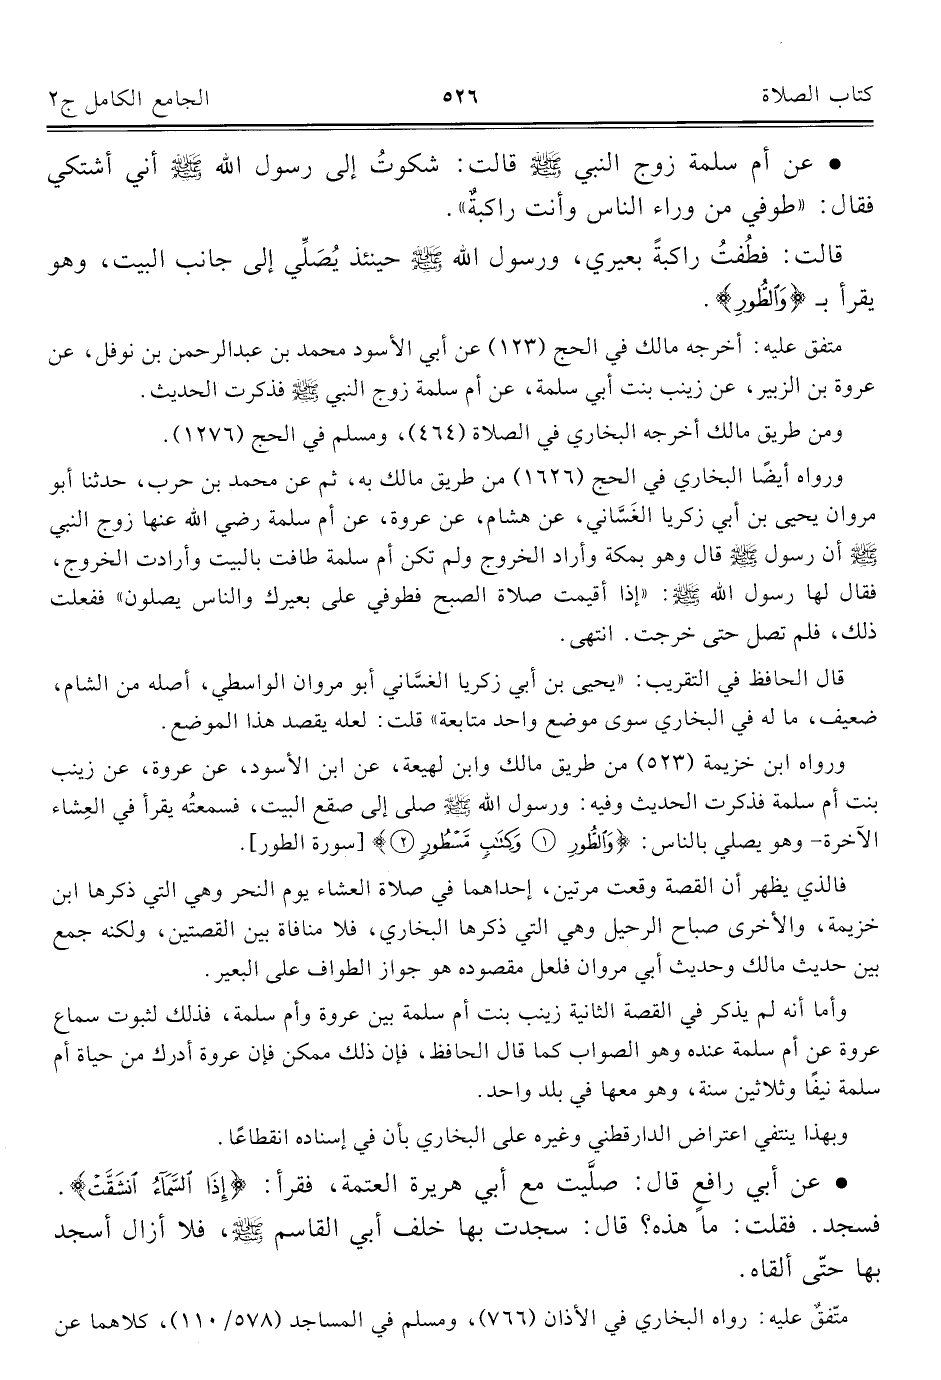 كتاب الصلاة ٥٢٦ الجامع الكامل ج٢
• عن أم سلمة زوج النبي ﷺ قالت: شكوتُ إلى رسول الله ﷺ أني أشتكي
فقال: «طوفي من وراء الناس وأنت راكبةٌ».
قالت: فطُفتُ راكبةً بعيري، ورسول الله ﷺ حينئذ يُصَلِّي إلى جانب البيت، وهو
يقرأ بـ ﴿وَٱلطُّورِ﴾.
متفق عليه: أخرجه مالك في الحج (١٢٣) عن أبي الأسود محمد بن عبدالرحمن بن نوفل، عن
عروة بن الزبير، عن زينب بنت أبي سلمة، عن أم سلمة زوج النبي ﷺ فذكرت الحديث.
ومن طريق مالك أخرجه البخاري في الصلاة (٤٦٤)، ومسلم في الحج (١٢٧٦).
ورواه أيضًا البخاري في الحج (١٦٢٦) من طريق مالك به، ثم عن محمد بن حرب، حدثنا أبو
مروان يحيى بن أبي زكريا الغَسَّاني، عن هشام، عن عروة، عن أم سلمة رضي الله عنها زوج النبي
ﷺ أن رسول ﷺ قال وهو بمكة وأراد الخروج ولم تكن أم سلمة طافت بالبيت وأرادت الخروج،
فقال لها رسول الله ﷺ: «إذا أقيمت صلاة الصبح فطوفي على بعيرك والناس يصلون» ففعلت
ذلك، فلم تصل حتى خرجت. انتهى.
قال الحافظ في التقريب: «يحيى بن أبي زكريا الغسَّاني أبو مروان الواسطي، أصله من الشام،
ضعيف، ما له في البخاري سوى موضع واحد متابعة» قلت: لعله يقصد هذا الموضع.
ورواه ابن خزيمة (٥٢٣) من طريق مالك وابن لهيعة، عن ابن الأسود، عن عروة، عن زينب
بنت أم سلمة فذكرت الحديث وفيه: ورسول الله ﷺ صلى إلى صقع البيت، فسمعتُه يقرأ في العِشاء
الآخرة- وهو يصلي بالناس: ﴿وَٱلطُّورِ ۝١ وَكِتَٰبٖ مَّسۡطُورٖ ۝٢﴾ [سورة الطور].
فالذي يظهر أن القصة وقعت مرتين، إحداهما في صلاة العشاء يوم النحر وهي التي ذكرها ابن
خزيمة، والأخرى صباح الرحيل وهي التي ذكرها البخاري، فلا منافاة بين القصتين، ولكنه جمع
بين حديث مالك وحديث أبي مروان فلعل مقصوده هو جواز الطواف على البعير.
وأما أنه لم يذكر في القصة الثانية زينب بنت أم سلمة بين عروة وأم سلمة، فذلك لثبوت سماع
عروة عن أم سلمة عنده وهو الصواب كما قال الحافظ، فإن ذلك ممكن فإن عروة أدرك من حياة أم
سلمة نيفًا وثلاثين سنة، وهو معها في بلد واحد.
وبهذا ينتفي اعتراض الدارقطني وغيره على البخاري بأن في إسناده انقطاعًا.
• عن أبي رافع قال: صلَّيت مع أبي هريرة العتمة، فقرأ: ﴿إِذَا ٱلسَّمَآءُ ٱنشَقَّتۡ﴾.
فسجد. فقلت: ما هذه؟ قال: سجدت بها خلف أبي القاسم ﷺ، فلا أزال أسجد
بها حتّى ألقاه.
متّفقٌ عليه: رواه البخاري في الأذان (٧٦٦)، ومسلم في المساجد (٥٧٨/ ١١٠)، كلاهما عن